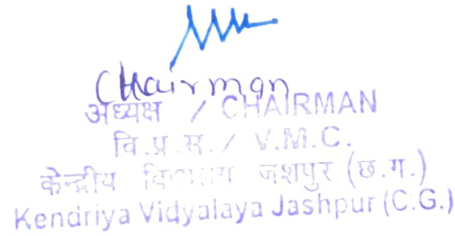 Chairman
अध्यक्ष / CHAIRMAN
वि.प्र.स. / V.M.C.
केन्द्रीय विद्यालय जशपुर (छ.ग.)
Kendriya Vidyalaya Jashpur (C.G.)